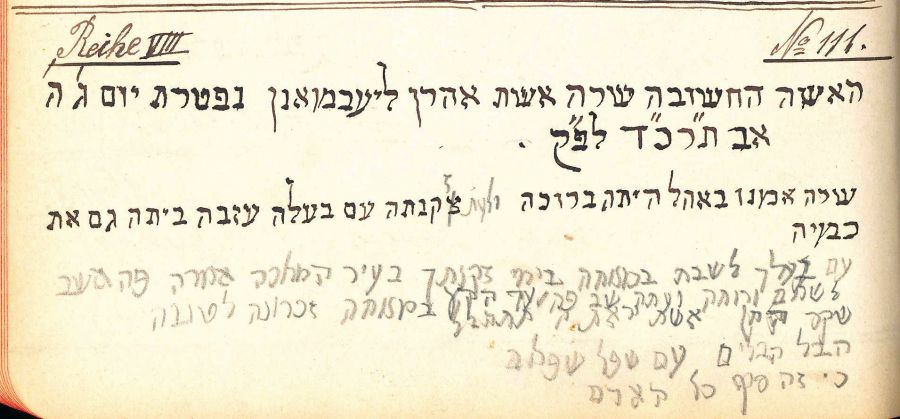 Reihe VIIII No 111.
האשה החשובה שרה אשת אהרן ליעבמואנן נפטרת יום ג' ה'
אב תרכ"ד לפ"ק.
שרה אמנו באהל היתה ברוכה זקנתה עם בעלה עזבה ביתה גם את
כבניה
עם לשבת במנוחה בימי זקנתך בעיר פה
לשלום עד הקץ במנוחה זכרונה לטובה
שקר החן אשת
הבל הבלים עם שפל שפלים
כי זה סוף כל האדם